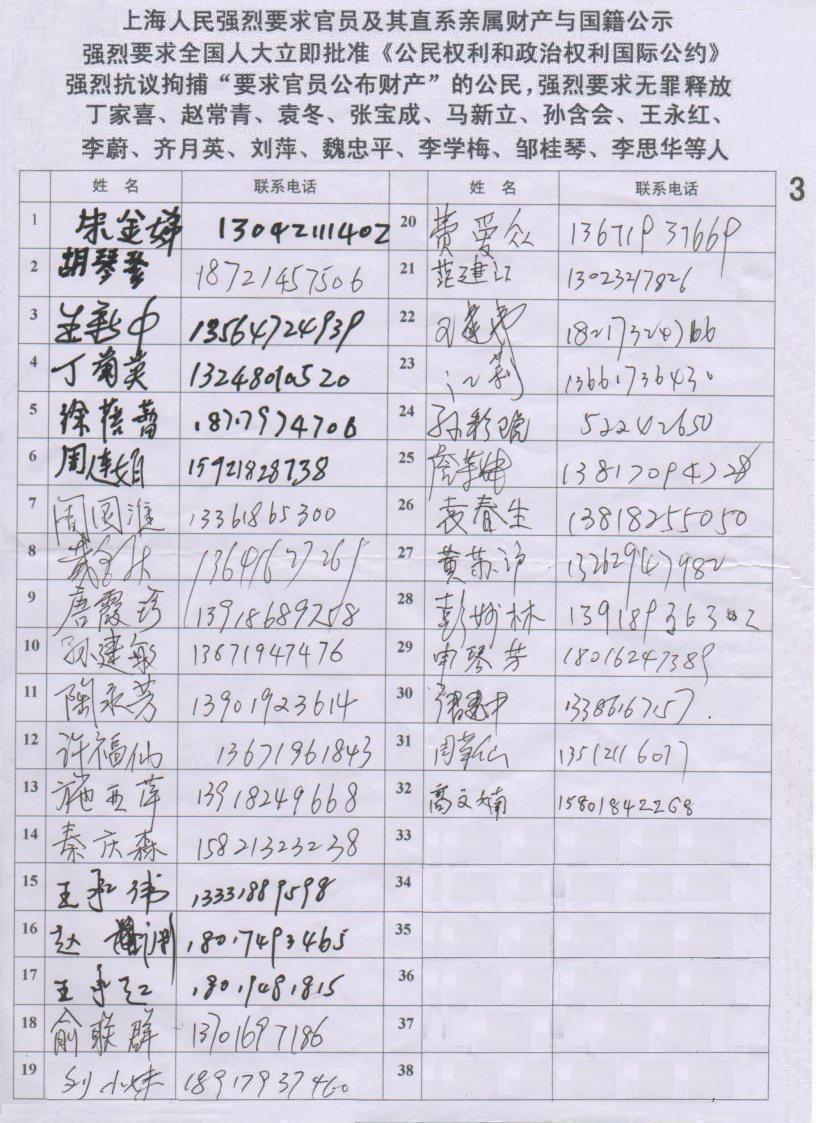 上海人民强烈要求官员及其直系亲属财产与国籍公示
强烈要求全国人大立即批准《公民权利和政治权利国际公约》
强烈抗议拘捕“要求官员公布财产”的公民,强烈要求无罪释放
丁家喜、赵常青、袁冬、张宝成、马新立、孙含会、王永红、
李蔚、齐月英、刘萍、魏忠平、李学梅、邹桂琴、李思华等人
3
姓 名 联系电话
1 朱金娣 13042111402
2 胡琴 18721457506
3 新中 13564724939
4 丁菊英 13248010520
5 徐蓓蕾 18717974706
6 周连娟 15921828738
7 周国 13361865300
8 13641627261
9 唐霞珍 13918689258
10 孙建敏 13671947476
11 陶永芳 13901923614
12 许福仙 13671961843
13 施亚萍 13918249668
14 秦庆森 15821323238
15 王 13331889598
16 赵 18017493465
17 王 18019481815
18 俞联群 13701697186
19 刘小妹 18917937460
姓 名 联系电话
20 费爱众 13671937669
21 范建江 13023217826
22 18217324766
23 江莉 13661736430
24 孙彩 52242650
25 13817094728
26 袁春生 13818255050
27 黄苏 13262947982
28 彭 林 13918936302
29 申琴芳 18016247389
30 13386167157
31 周 仙 13512116077
32 高文 15801842268
33
34
35
36
37
38